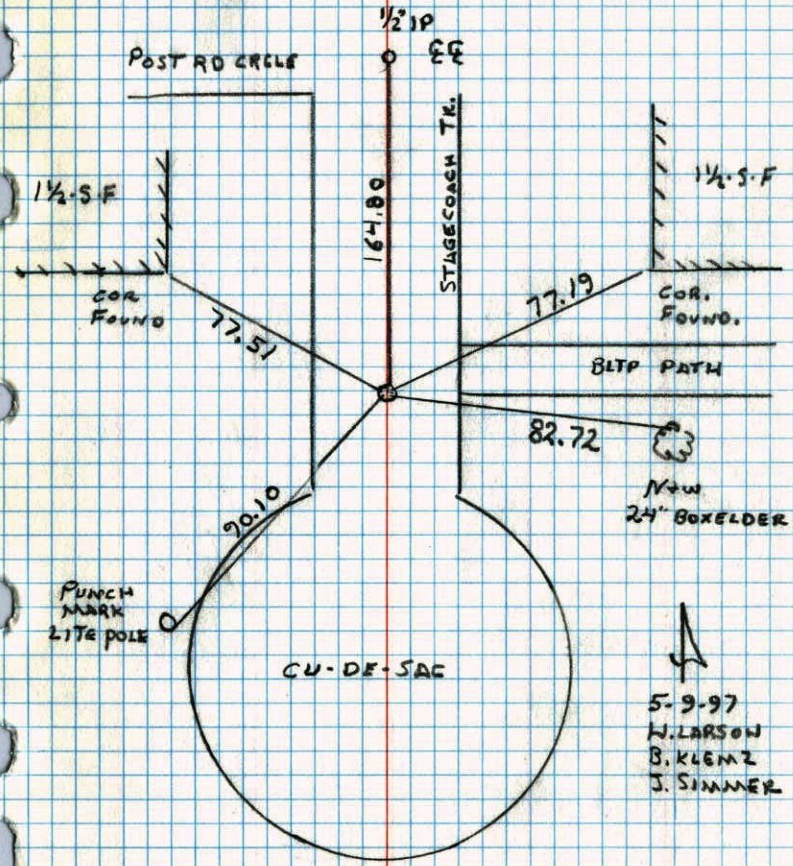 1/2" IP
℄ ℄
POST RD CRCLE
STAGECOACH TR.
164.80
1 1/2. S. F
1 1/2. S. F
COR
FOUND
77.51
77.19
COR.
FOUND.
BLTP PATH
82.72
N+W
24" BOXELDER
90.10
PUNCH
MARK
LITE POLE
CU-DE-SAC
5-9-97
W. LARSON
B. KLEMZ
J. SIMMER